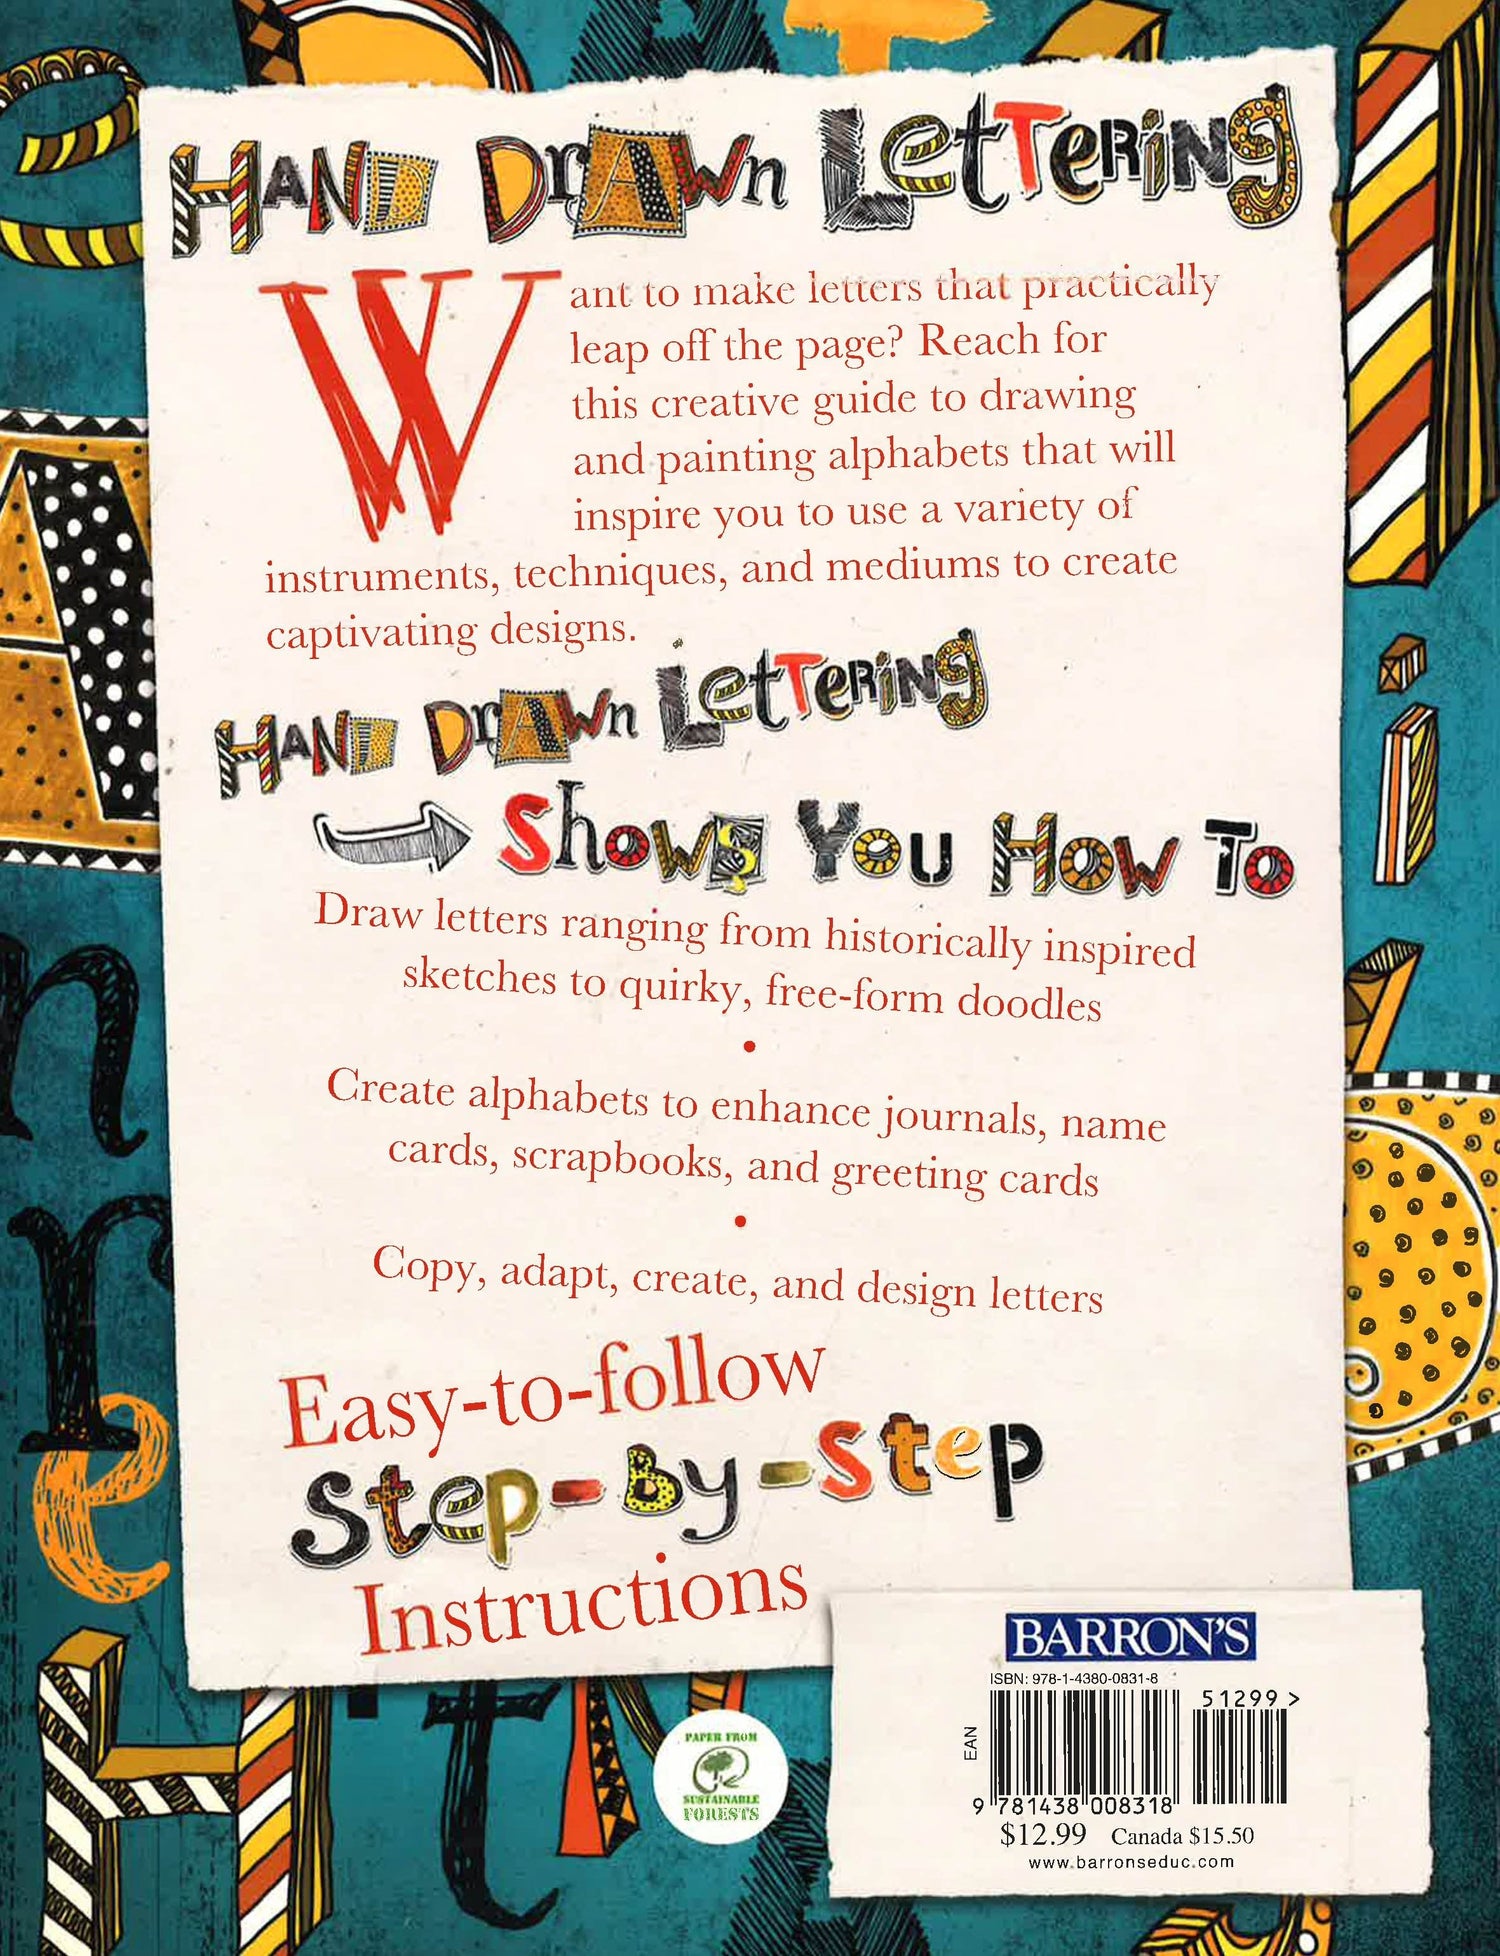 HAND DrAWn LetTeRiNg
Want to make letters that practically
leap off the page? Reach for
this creative guide to drawing
and painting alphabets that will
inspire you to use a variety of
instruments, techniques, and mediums to create
captivating designs.
HAND DrAWn LetTeRiNg
Shows You How To
Draw letters ranging from historically inspired
sketches to quirky, free-form doodles
•
Create alphabets to enhance journals, name
cards, scrapbooks, and greeting cards
•
Copy, adapt, create, and design letters
Easy-to-follow
Step-by-Step
Instructions
PAPER FROM
SUSTAINABLE
FORESTS
BARRON'S
ISBN: 978-1-4380-0831-8
51299 >
EAN
9 781438 008318
$12.99 Canada $15.50
www.barronseduc.com